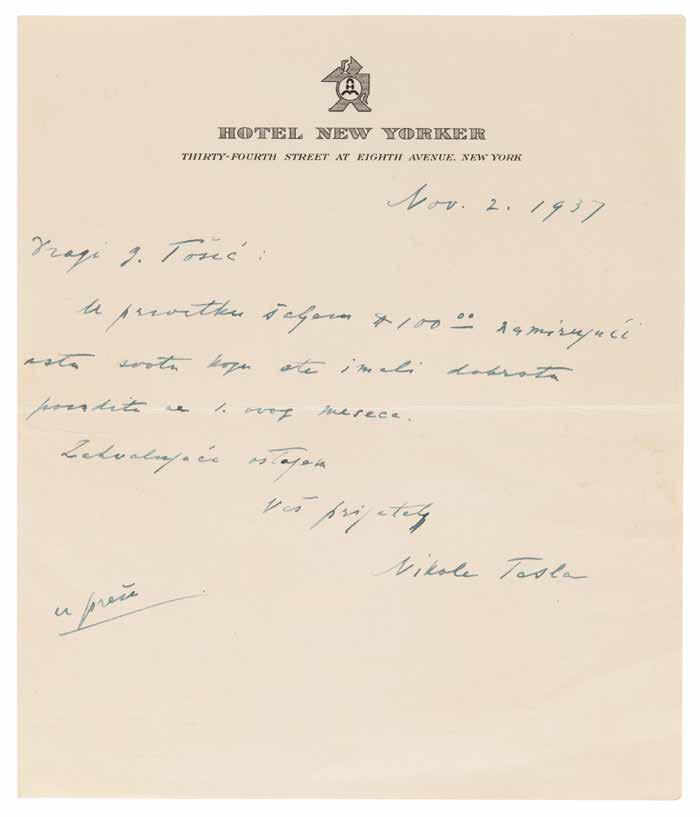 HOTEL NEW YORKER
THIRTY-FOURTH STREET AT EIGHTH AVENUE, NEW YORK
Nov. 2. 1937
Dragi g. Tošić:
U privitku šaljem $100⁰⁰ namirujući
istu svotu koju ste imali dobrotu
posuditi na 1. ovog meseca.
Zahvalujući ostajem
Vaš prijatelj
Nikola Tesla
u preši